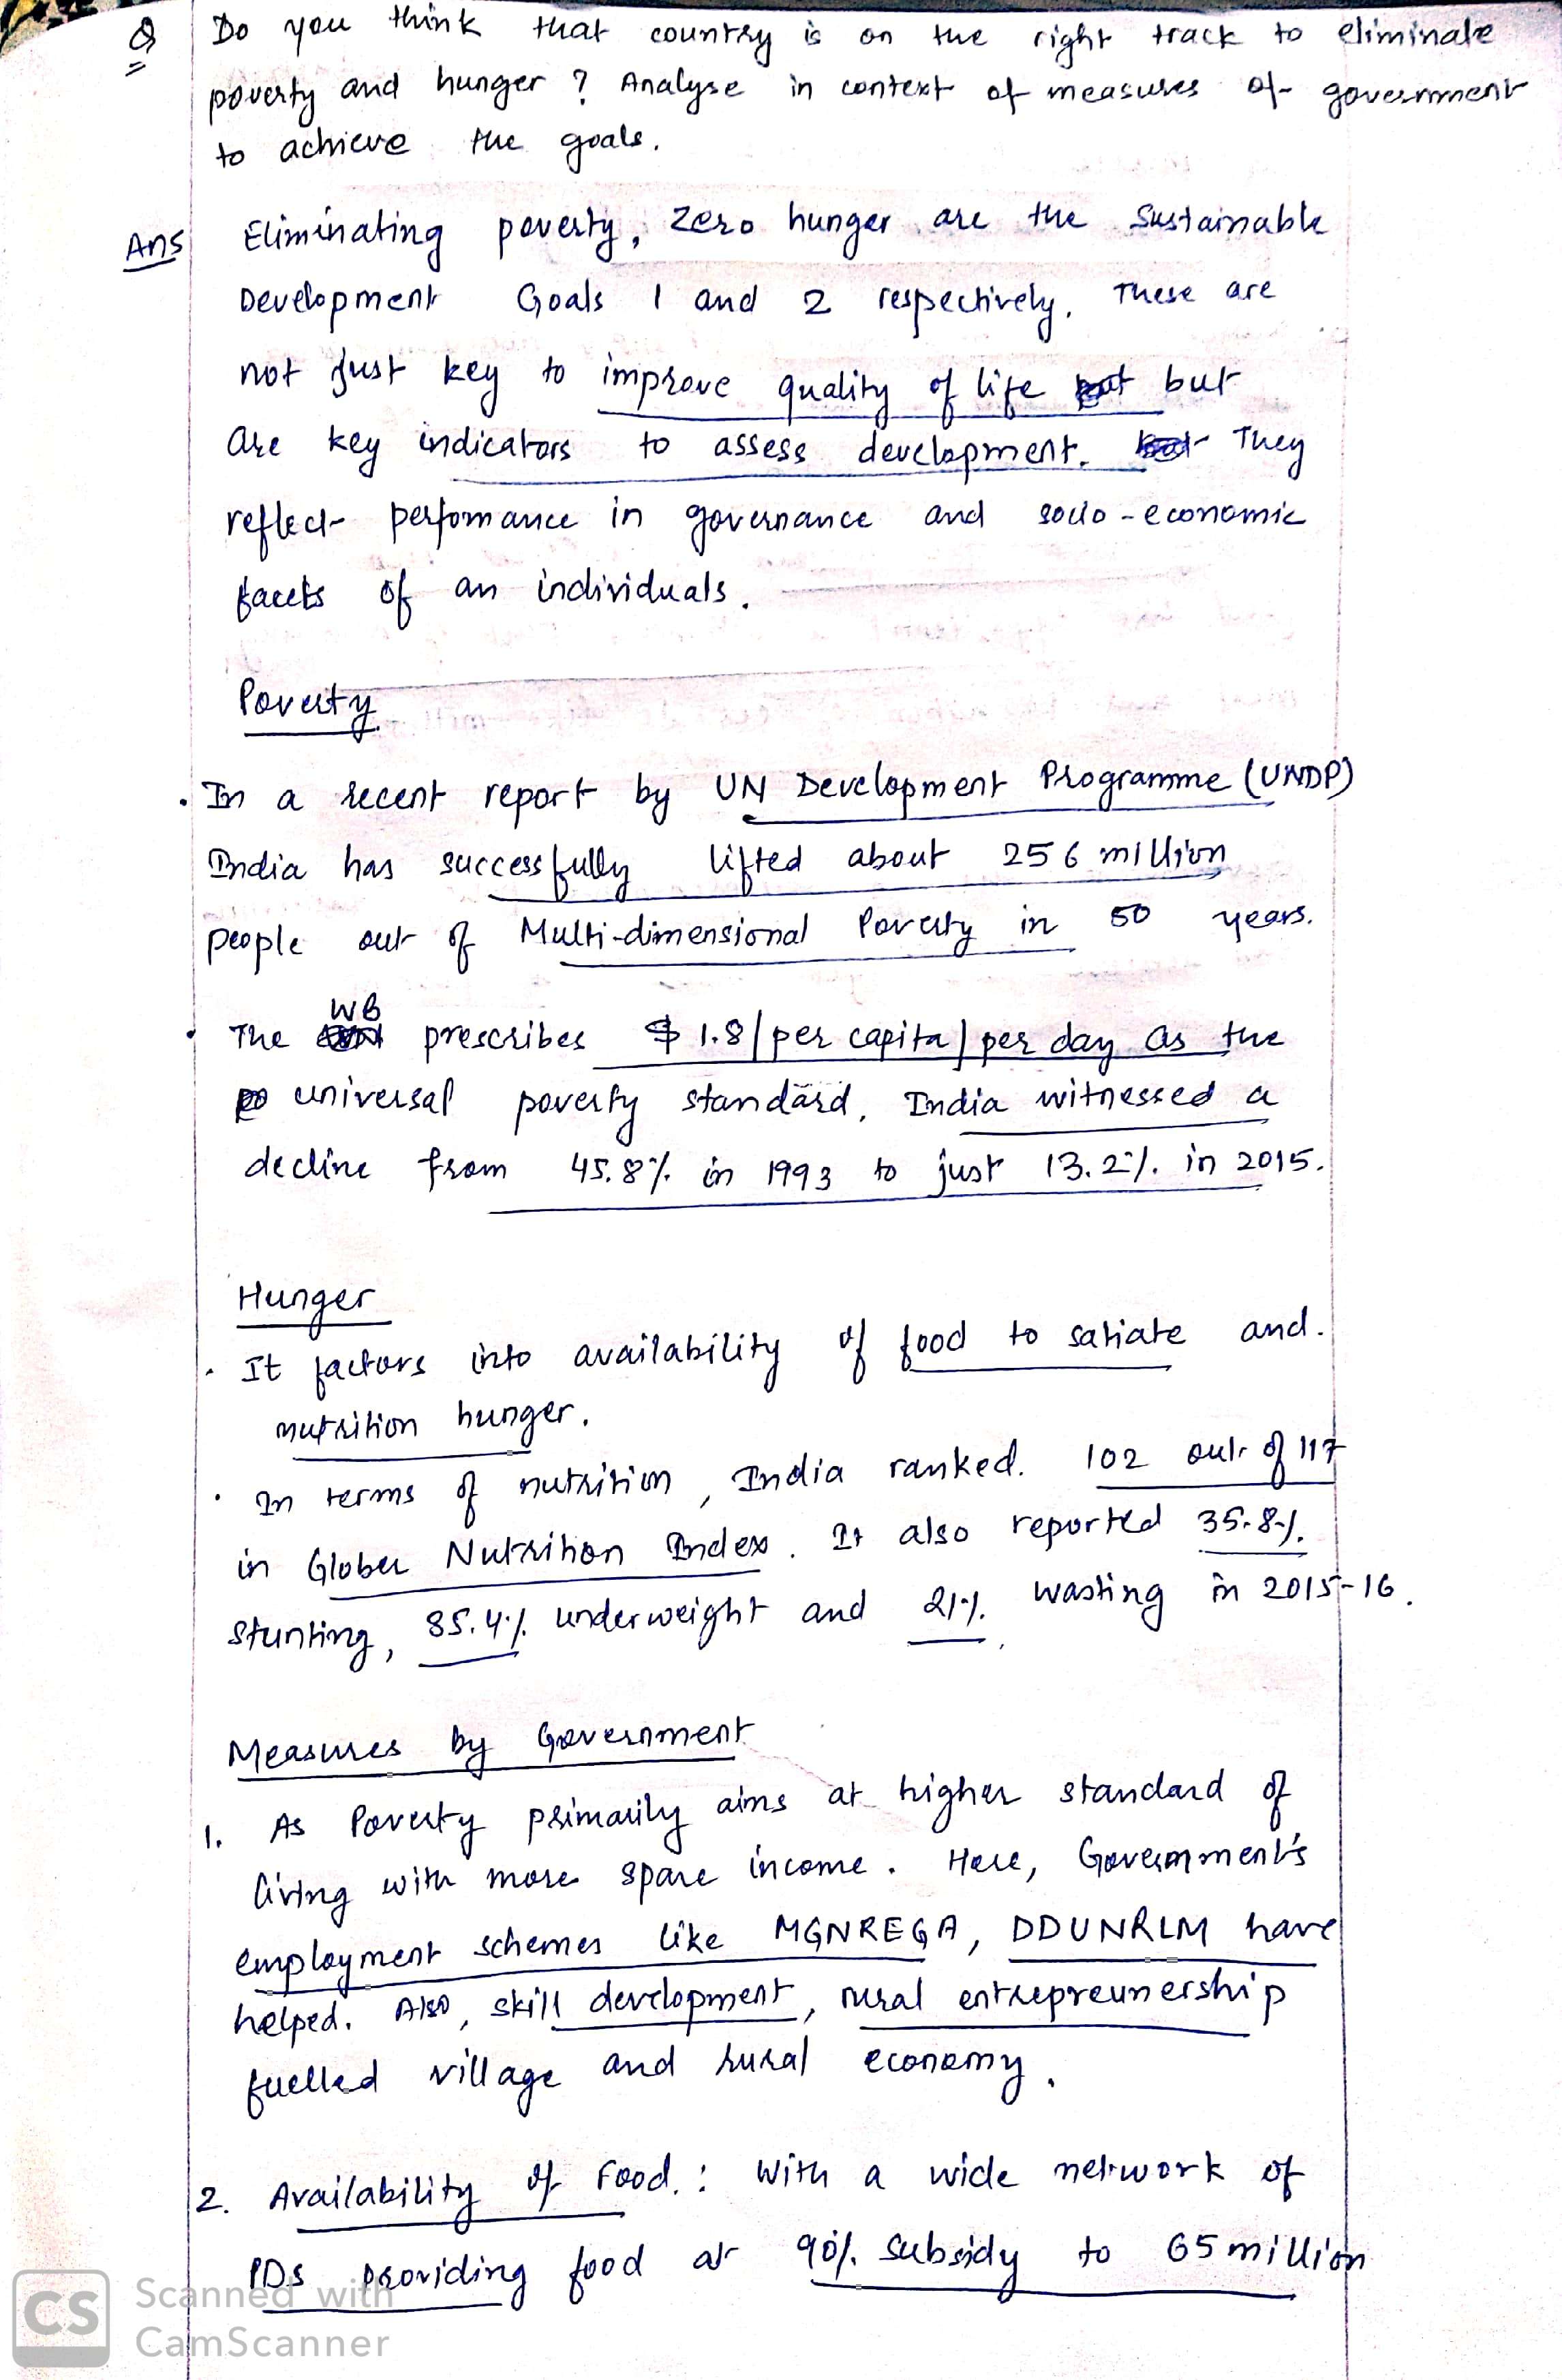 Q Do you think that country is on the right track to eliminate
poverty and hunger ? Analyse in context of measures of government
to achieve the goals.
Ans Eliminating poverty, zero hunger are the Sustainable
Development Goals 1 and 2 respectively. These are
not just key to improve quality of life but
are key indicators to assess development. They
reflect perfomance in governance and socio-economic
facets of an individuals.
Poverty
. In a recent report by UN Development Programme (UNDP)
India has successfully lifted about 256 million
people out of Multi-dimensional Poverty in 50 years.
WB
. The prescribes $ 1.8/per capita/per day as the
universal poverty standard, India witnessed a
decline from 45.8% in 1993 to just 13.2%. in 2015.
Hunger
. It factors into availability of food to satiate and.
nutrition hunger.
. In terms of nutrition, India ranked. 102 out of 117
in Glober Nutrition Index. It also reported 35.8%.
stunting, 35.4% underweight and 21%. wasting in 2015-16.
Measures by Government
1. As Poverty primarily aims at higher standard of
living with more spare income. Here, Government's
employment schemes like MGNREGA, DDUNRLM have
helped. Also, skill development, rural entrepreunership
fuelled village and rural economy.
2. Availability of Food. : With a wide network of
PDS providing food at 90%. subsidy to 65 million
CS Scanned with
CamScanner